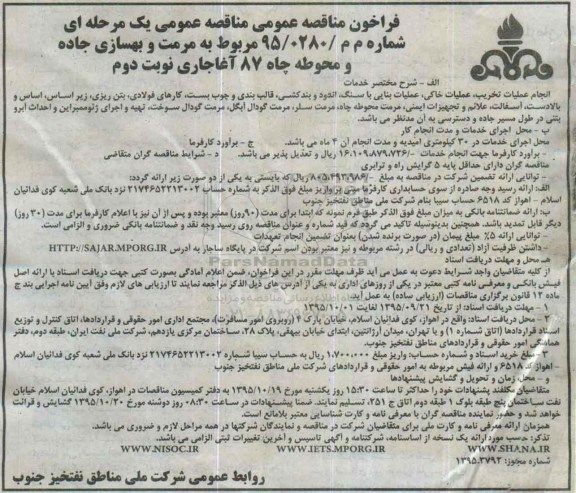 فراخون مناقصه عمومی مناقصه عمومی یک مرحله ای
شماره م م /۹۵/۰۲۸۰ مربوط به مرمت و بهسازی جاده
و محوطه چاه ۸۷ آغاجاری نوبت دوم
الف - شرح مختصر خدمات
انجام عملیات تخریب، عملیات خاکی، عملیات بنایی با سنگ، اندود و بندکشی، قالب بندی و چوب بست، کارهای فولادی، بتن ریزی، زیر اساس، اساس و
بالادست، آسفالت، علائم و تجهیزات ایمنی، مرمت محوطه چاه، مرمت سلر، مرمت گودال آبگل، مرمت گودال سوخت، تهیه و اجرای ژئوممبراین و احداث آبرو
بتنی در طول مسیر جاده و دسترسی به آن مدنظر می باشد.
ب - محل اجرای خدمات و مدت انجام کار
محل اجرای خدمات در ۳۰ کیلومتری امیدیه و مدت انجام آن ۴ ماه می باشد. ج - برآورد کارفرما
- برآورد کارفرما جهت انجام خدمات ۱۶،۱۰۹،۸۷۹،۷۳۶/- ریال و تعدیل پذیر می باشد. د - شرایط مناقصه گران متقاضی
مناقصه گران دارای حداقل پایه ۵ گرایش راه و ترابری
- توانایی ارائه تضمین شرکت در مناقصه به مبلغ ۸۰۵،۴۹۳،۹۸۶/- ریال که بایستی به یکی از دو صورت زیر ارائه گردد:
الف: ارائه رسید وجه صادره از سوی حسابداری کارفرما مبنی بر واریز مبلغ فوق الذکر به شماره حساب ۲۱۷۴۶۵۲۲۱۳۰۰۲ نزد بانک ملی شعبه کوی فدائیان
اسلام - اهواز کد ۶۵۱۸ حساب سیبا بنام شرکت ملی مناطق نفتخیز جنوب
ب: ارائه ضمانتنامه بانکی به میزان مبلغ فوق الذکر طبق فرم نمونه که ابتدا برای مدت (۹۰روز) معتبر بوده و پس از آن نیز با اعلام کارفرما برای مدت (۳۰ روز)
دیگر قابل تمدید باشد. همچنین بدینوسیله تاکید می گردد که قید شماره و عنوان مناقصه روی رسید وجه نقد و ضمانتنامه بانکی ضروری و الزامی است.
- توانایی ارائه ۵٪ مبلغ پیمان (در صورت برنده شدن) بعنوان تضمین انجام تعهدات
- داشتن ظرفیت آزاد (تعدادی و ریالی) در رشته مربوطه و نیز معتبر بودن اسم شرکت در پایگاه ساجار به آدرس HTTP://SAJAR.MPORG.IR
هـ- محل و مهلت دریافت اسناد
از کلیه متقاضیان واجد شرایط دعوت به عمل می آید ظرف مهلت مقرر در این فراخوان، ضمن اعلام آمادگی بصورت کتبی جهت دریافت اسناد با ارائه اصل
فیش بانکی و معرفی نامه کتبی معتبر در یکی از روزهای اداری به یکی از آدرس های ذیل الذکر مراجعه نمایند تا ارزیابی های لازم وفق آیین نامه اجرایی بند ج
ماده ۱۲ قانون برگزاری مناقصات (ارزیابی ساده) به عمل آید.
۱ - مهلت دریافت اسناد: از تاریخ ۱۳۹۵/۰۹/۲۱ لغایت ۱۳۹۵/۱۰/۰۱
۲ - محل دریافت اسناد: واقع در اهواز، کوی فدائیان اسلام، خیابان پارک ۲ (روبروی امور مسافرت)، مجتمع اداری امور حقوقی و قراردادها، اتاق کنترل و توزیع
اسناد قراردادها (اتاق شماره ۱) و یا تهران، میدان آرژانتین، ابتدای خیابان بیهقی، پلاک ۲۸، ساختمان مرکزی یازدهم، شرکت ملی نفت ایران، طبقه دوم، دفتر
هماهنگی امور حقوقی و قراردادهای مناطق نفتخیز جنوب.
۳ - مبلغ خرید اسناد و شماره حساب: واریز مبلغ ۱،۷۰۰،۰۰۰ ریال به حساب سیبا شماره ۲۱۷۴۶۵۲۲۱۳۰۰۲ نزد بانک ملی شعبه کوی فدائیان اسلام
- اهواز کد ۶۵۱۸ و ارائه فیش مربوطه به امور حقوقی و قراردادهای شرکت ملی مناطق نفتخیز جنوب
و - محل زمان و تحویل و گشایش پیشنهادها
متقاضیان مکلفند پیشنهادات خود را حداکثر تا ساعت ۱۵:۳۰ روز یکشنبه مورخ ۱۳۹۵/۱۰/۱۹ به دفتر کمیسیون مناقصات در اهواز، کوی فدائیان اسلام خیابان
نفت ساختمان پنج طبقه بلوک ۱ طبقه دوم اتاق ج ۲۵۱، تسلیم نمایند. ضمنا پیشنهادات در ساعت ۰۸:۳۰ روز دوشنبه مورخ ۱۳۹۵/۱۰/۲۰ گشایش و قرائت
خواهد شد و حضور نماینده مناقصه گران با معرفی نامه و کارت شناسایی معتبر بلامانع است.
همزمان ارائه معرفی نامه و کارت ملی برای متقاضیان شرکت در مناقصه و نمایندگان شرکتها در همه مراحل لازم و ضروری می باشد.
تذکر: حسب مورد ارائه یک نسخه از اساسنامه، شرکتنامه و آگهی تاسیس و آخرین تغییرات ثبتی الزامی می باشد.
WWW.SHANA.IR WWW.IETS.MPORG.IR WWW.NISOC.IR
شماره مجوز: ۱۳۹۵.۳۷۹۲
روابط عمومی شرکت ملی مناطق نفتخیز جنوب
ParsNamadData